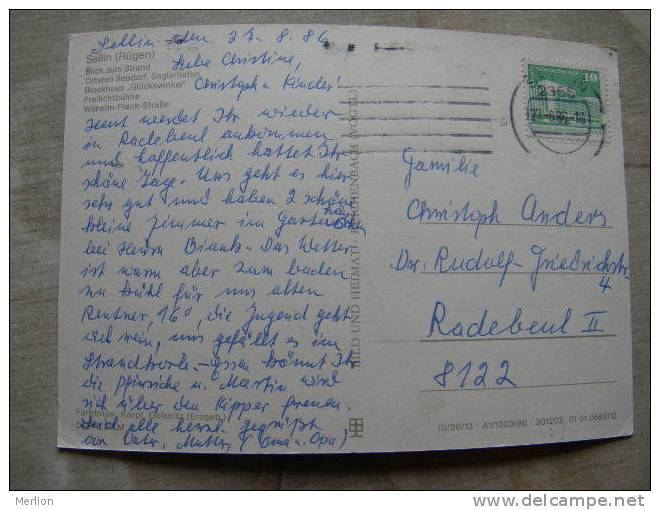 Sellin den 21.8.86
Sellin (Rügen)
Blick zum Strand
Ortsteil Seedorf, Seglerhafen
Blockhaus „Glückswinkel"
Freilichtbühne
Wilhelm-Pieck-Straße
Liebe Christine,
Christoph u Kinder!
Heut werdet Ihr wieder
in Radebeul ankommen
und hoffentlich hattet Ihr
schöne Tage. Uns geht es hier
sehr gut und haben 2 schöne
kleine Zimmer im Garten
bei Herrn Das Wetter
ist warm aber zum baden
zu kühl für uns alten
Rentner, 16°, die Jugend geht
viel rein, uns gefällt es im
Strandkorb. Essen könnt Ihr
die Pfirsiche u. Martin wird
sich über den Kipper freuen.
Seid alle herzl gegrüßt
von Vater, Mutter, (Oma u. Opa)
Farbfotos: Karpf, Oelsnitz (Erzgeb.)
BILD UND HEIMAT REICHENBACH (VOGTL)
10
2355
Familie
Christoph Anders
Dr. Rudolf-Friedrichstr.
4
Radebeul II
8122
III/26/13 · A1/1203/86 · 301203 01 01 0683/12
Merlion
http://www.delcampe.net